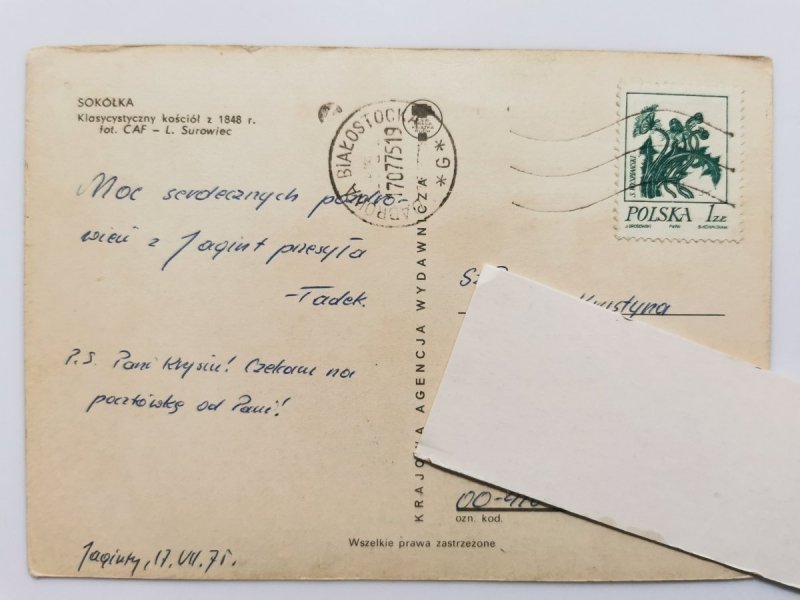 SOKÓŁKA
Klasycystyczny kościół z 1848 r.
fot. CAF – L. Surowiec
Moc serdecznych pozdro-
wień z Jagint przesyła
-Tadek.
P.S. Pani Krysiu! Czekam na
pocztówkę od Pani!
Jaginty, 17.VII.75.
DĄBROWA BIAŁOSTOCKA
17077519
*G*
KRAJOWA AGENCJA WYDAWNICZA
POLSKA 1 ZŁ
Krystyna
00-
ozn. kod.
Wszelkie prawa zastrzeżone